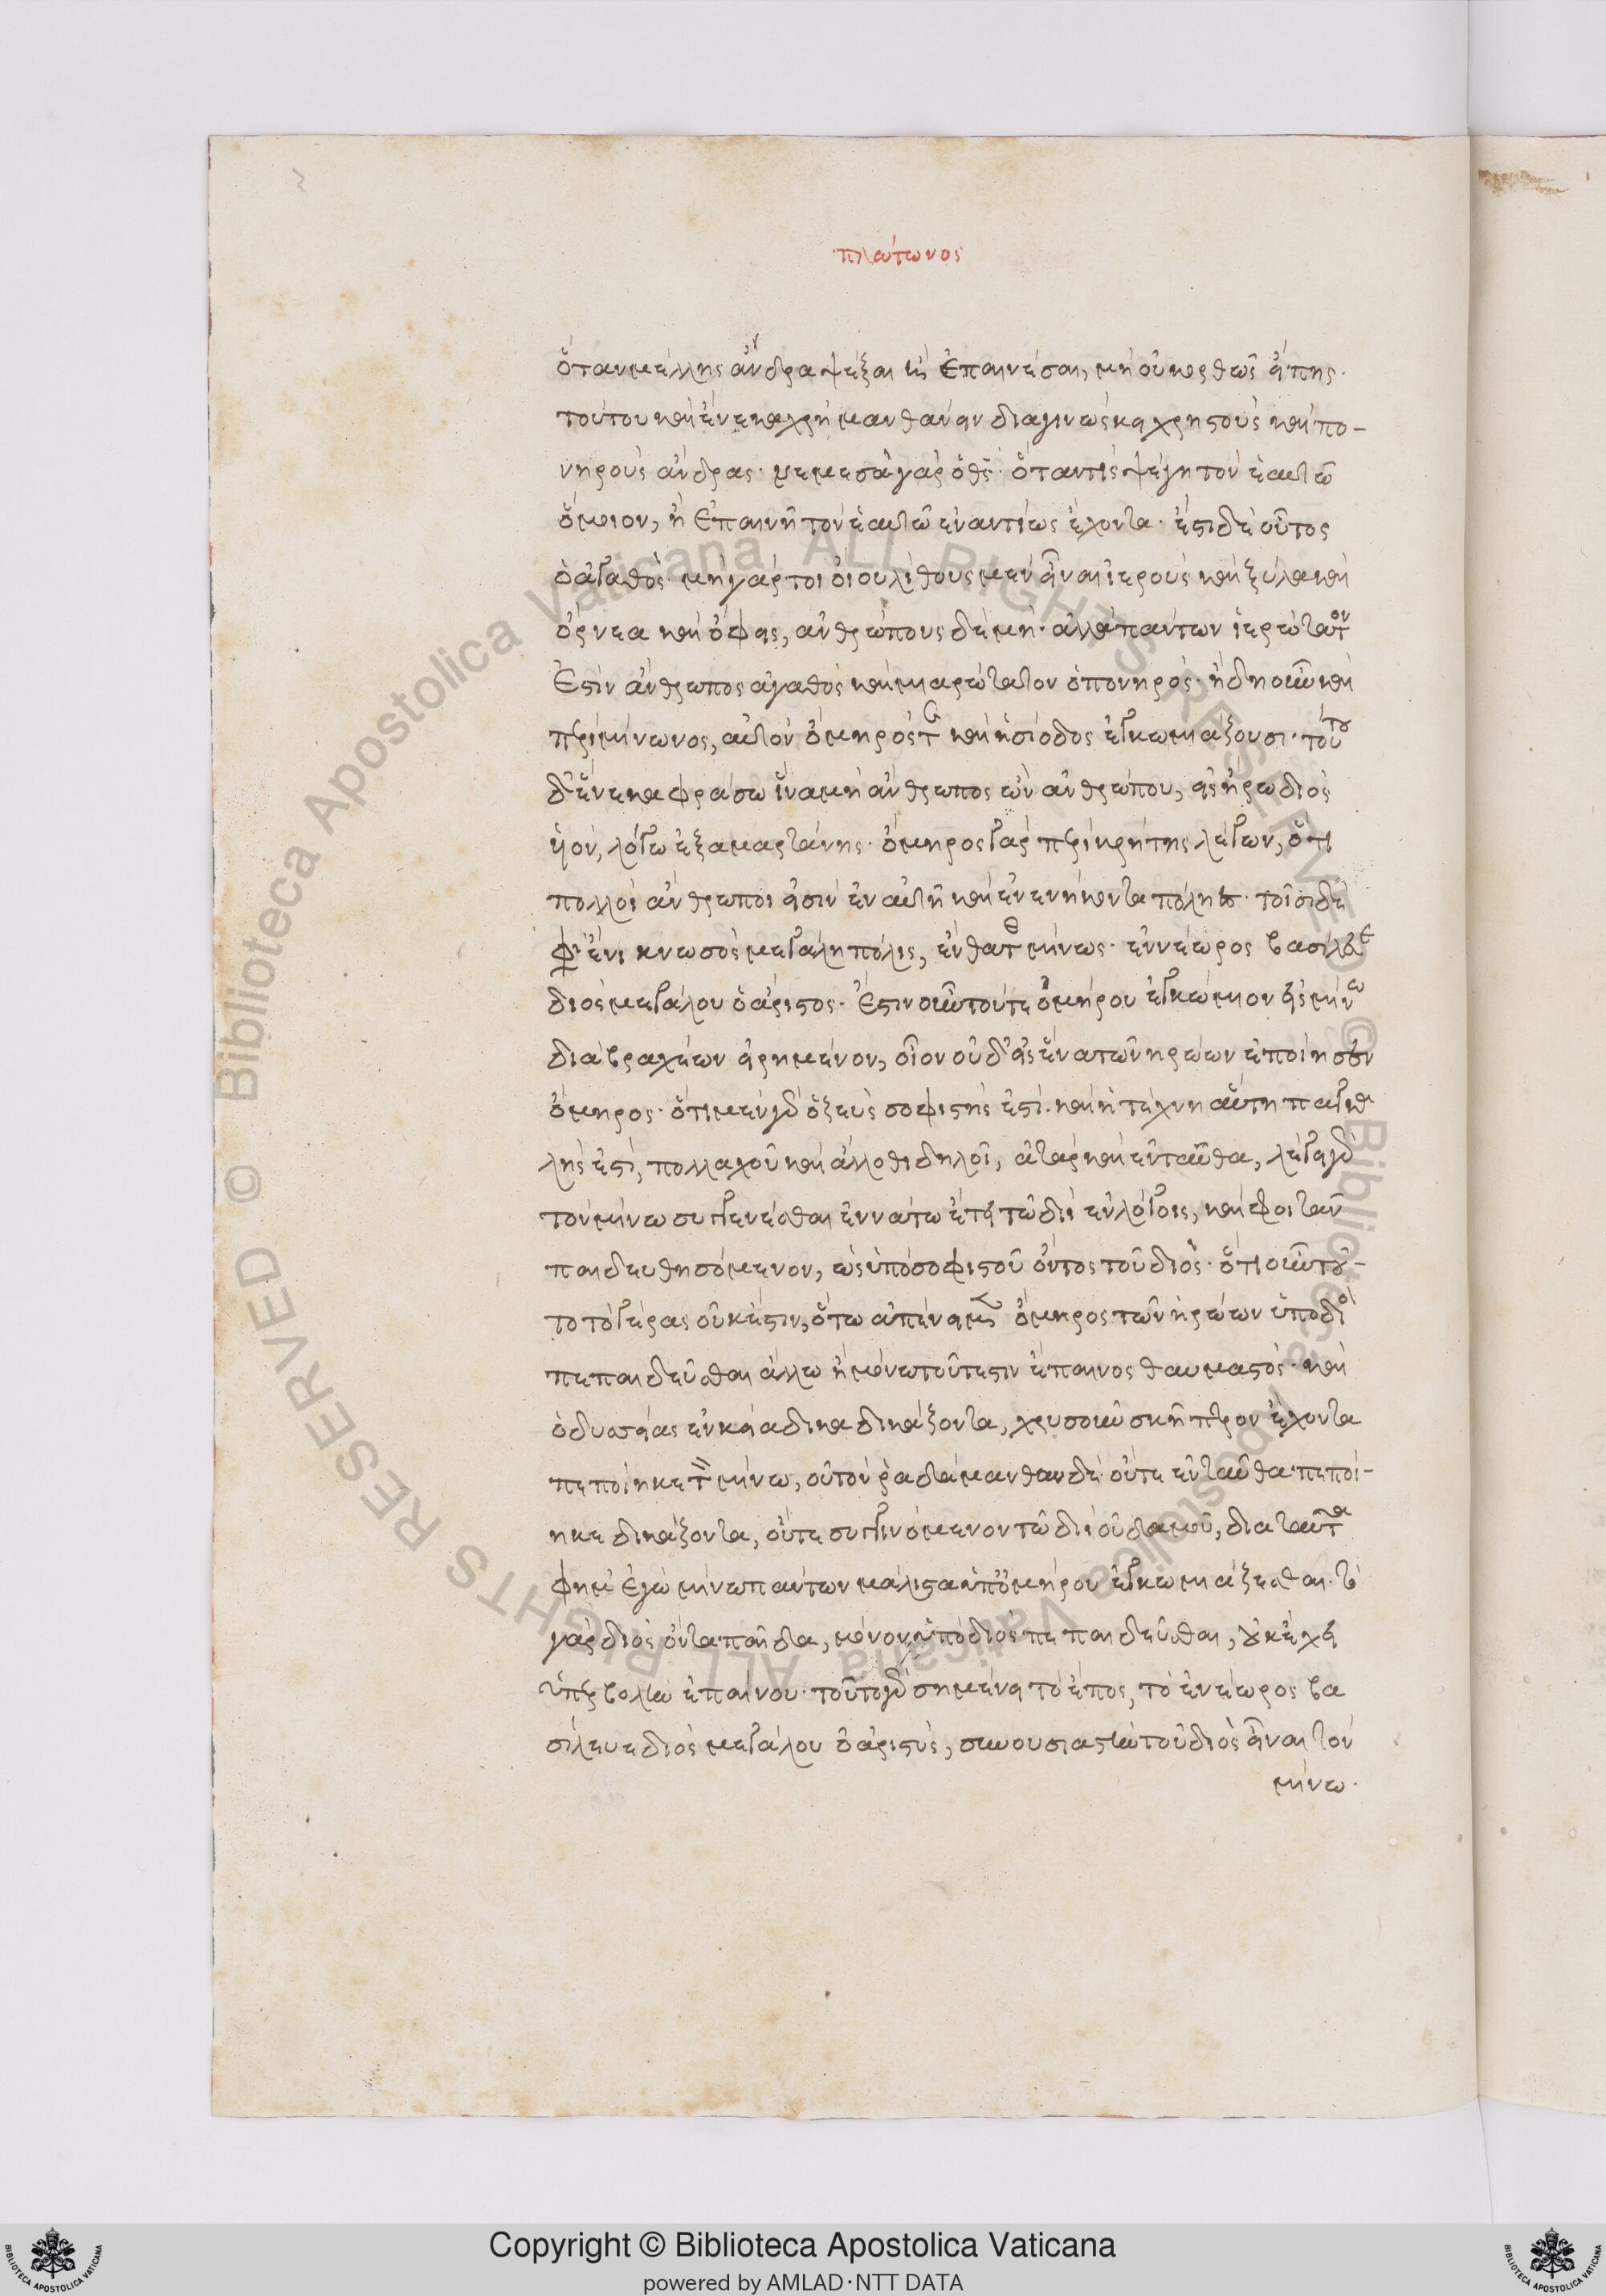 πλάτωνος
ὅταν μέλλῃς ἄνδρα ψέξαι ἢ ἐπαινέσαι, μὴ οὐκ ὀρθῶς εἴπῃς·
τούτου καὶ ἕνεκα χρὴ μανθάνειν διαγινώσκειν χρηστοὺς καὶ πο-
νηροὺς ἄνδρας· νεμεσᾶ γὰρ ὁ θεός· ὅταν τις ψέγῃ τὸν ἑαυτῶ
ὅμοιον, ἢ ἐπαινῆ τὸν ἑαυτῶ ἐναντίως ἔχοντα· ἔστι δὲ οὗτος
ὁ ἀγαθός· μὴ γάρ τοι οἴου λίθους μὲν εἶναι ἱεροὺς καὶ ξύλα καὶ
ὄρνεα καὶ ὄφεις, ἀνθρώπους δὲ μή· ἀλλὰ πάντων ἱερώτατον
ἐστὶν ἄνθρωπος ἀγαθὸς καὶ μιαρώτατον ὁ πονηρός· ἤδη οὖν καὶ
περὶ μίνωνος, αὐτὸν ὅμηρός τε καὶ ἡσίοδος ἐγκωμιάζουσι· τούτου
δ' ἕνεκα φράσω ἵνα μὴ ἄνθρωπος ὢν ἀνθρώπου, εἰς ἥρω διὸς
ὑὸν, λόγω ἐξαμαρτάνῃς· ὅμηρος γὰρ περὶ κρήτης λέγων, ὅτι
πολλοὶ ἄνθρωποι εἰσὶν ἐν αὐτῆ καὶ ἐνενήκοντα πόληες· τοῖσι δέ
φησιν ἔνι κνωσὸς μεγάλη πόλις, ἔνθά τε μίνως· ἐννέωρος βασίλευε
διὸς μεγάλου ὀαριστος· ἔστιν οὖν τοῦτο ὁμήρου ἐγκώμιον εἰς μίνω
διὰ βραχέων εἰρημένον, οἷον οὐδ' εἰς ἕνα τῶν ἡρώων ἐποίησεν
ὅμηρος· ὅτι μὲν γὰρ ὁ ζεὺς σοφιστής ἐστι· καὶ ἡ τέχνη αὕτη παγκα
λής ἐστι, πολλαχοῦ καὶ ἄλλοθι δηλοῖ, ἀτὰρ καὶ ἐνταῦθα, λέγει γὰρ
τὸν μίνω συγγενέσθαι ἐννάτω ἔτει τῶ διὶ ἐν λόγοις, καὶ φοιτᾶν
παιδευθησόμενον, ὡς ὑπὸ σοφιστοῦ ὄντος τοῦ διός· ὅτι οὖν τοῦ-
το τὸ γέρας οὐκ ἔστιν, ὅτω ἀπένειμεν ὅμηρος τῶν ἡρώων ὑπὸ διὸς
πεπαιδεῦσθαι ἄλλω ἢ μίνω τοῦτ ἔστιν ἔπαινος θαυμαστός· καὶ
ὀδυσσείας ἐν νεκυία δικάζοντα, χρυσοῦν σκῆπτρον ἔχοντα
πεποίηκε τὸν μίνω, οὐ τὸν ῥαδάμανθυν δὲ οὔτε ἐνταῦθα πεποί-
ηκε δικάζοντα, οὔτε συγγινόμενον τῶ διὶ οὐδαμοῦ, διὰ ταῦτα
φημ' ἐγὼ μίνω πάντων μάλιστα ὑπὸ ὁμήρου ἐγκωμιάζεσθαι· τὸ
γὰρ διὸς ὄντα παῖδα, μόνον ὑπὸ διὸς πεπαιδεῦσθαι, οὐκ ἔχει
ὑπερβολὴν ἐπαίνου· τοῦτο γὰρ σημαίνει τὸ ἔπος, τὸ ἐννέωρος βα
σίλευε διὸς μεγάλου ὀαριστὺς, συνουσιαστὴν τοῦ διὸς εἶναι τὸν
μίνω·
Copyright © Biblioteca Apostolica Vaticana
powered by AMLAD·NTT DATA